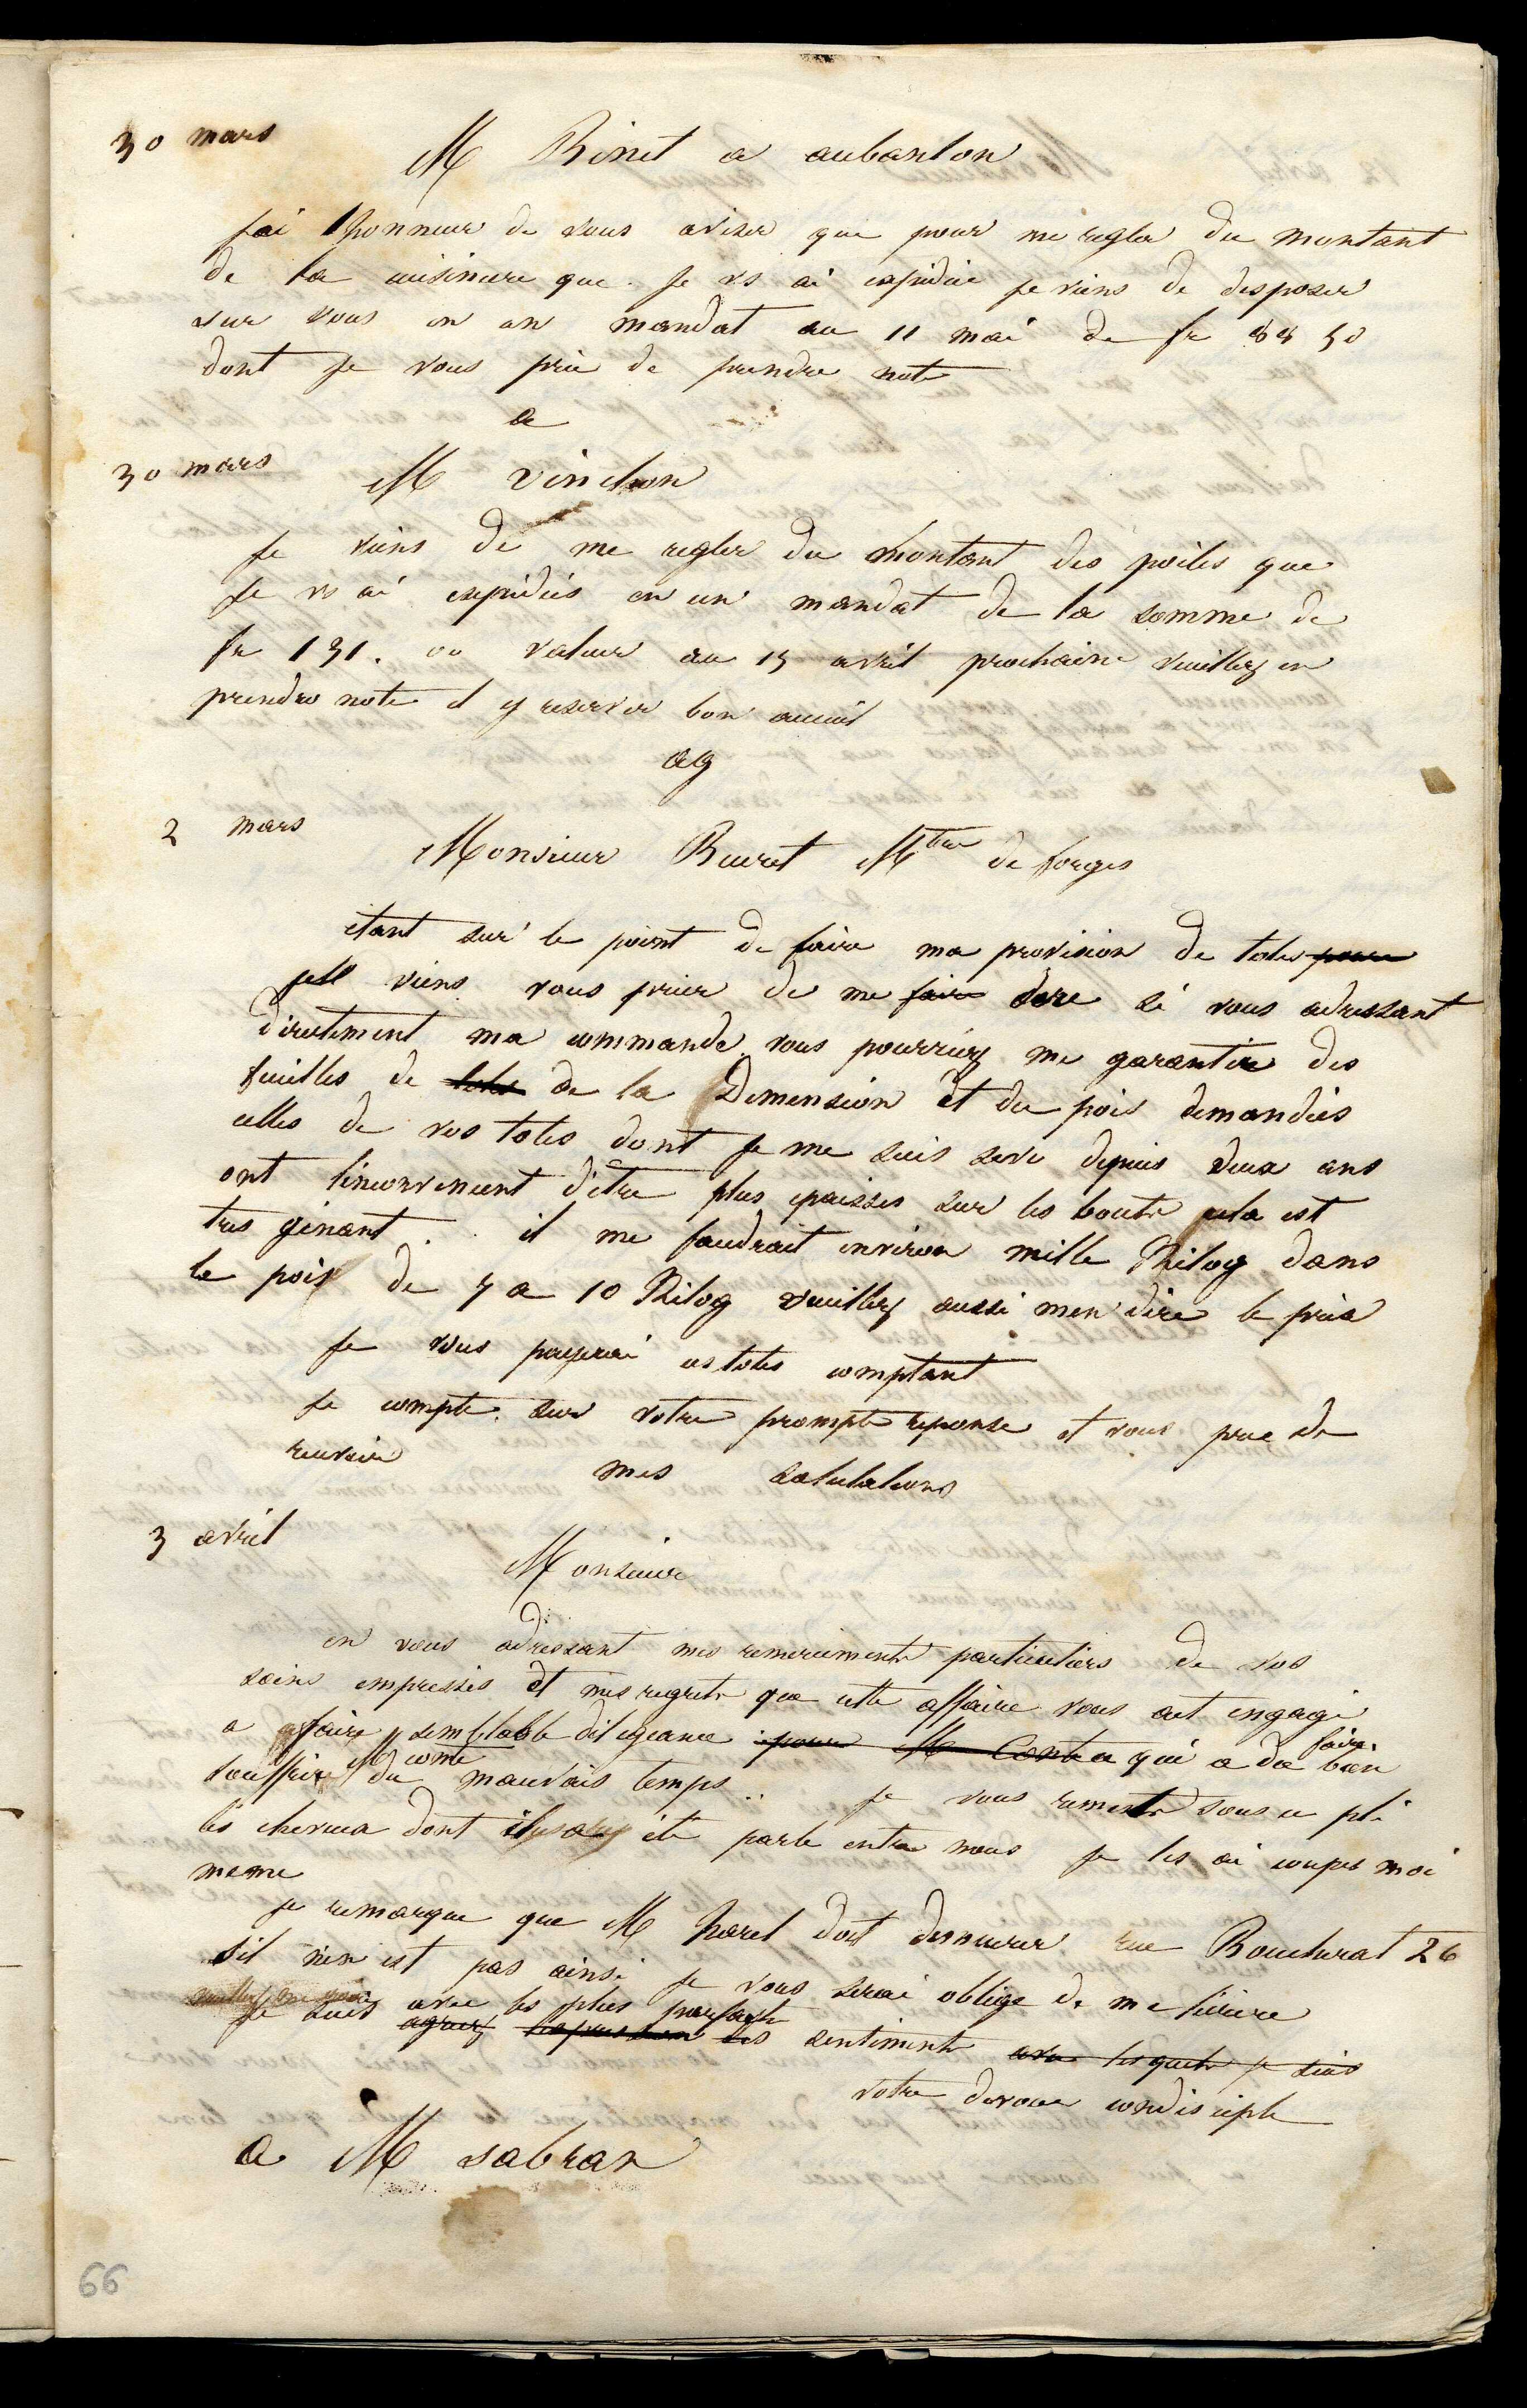 30 mars
M Binet a aubanton
jai lhonneur de vous aviser que pour me regler du montant
de la cuisiniere que je vs ai expédiée je viens de desposer
sur vous en un mandat au 11 mai de fr 50
dont je vous prie de prendre note
a
30 mars
M vinchon
je viens de me regler du montant des poiles que
je vs ai expédiés en un mandat de la somme de
fr 131. oo valeur au 15 avril prochaine veuillez en
prendre note et y reserver bon acceuil
ag
2 mars
Monsieur Buiret Mtre de forges
étant sur le point de faire ma provision de toles pour
je viens vous prier de me faire dire si vous adressant
directement ma commande vous pourriez me garantire des
feuilles de toles de la Dimension et du pois demandées
celles de vos toles dont je me suis servi depuis deux ans
ont linconvenient d'être plus epaisses sur les bouts cela est
tres gênant . . il me faudrait environ mille Kilog dans
le pois de 7 a 10 Kilog veuillez aussi men dire le prix
je vous payerai ces toles comptant
je compte sur votre prompte reponse et vous prie de
recevoir mes salutations
3 avril
Monsieur
en vous adressant mes remerciments particuliers de vos
soins empressés et mes regrets que cette affaire vous ait engagé
a faire semblable diligeance pour M Conte qui a du bien
faire
M conte
souffrire du mauvais temps .. je vous remets sous ce pli
les cheveux dont été parlé entre nous je les ai coupés moi
meme
je remarque que M harel doit demeurer rue Boucherat 26
sil n'en est pas ainsi je vous serai oblige de me lécrire
je suis avec les plus parfaits
agreez lexpression des sentiments avec lesquels je suis
votre devoué condisciple
a M sabran
66